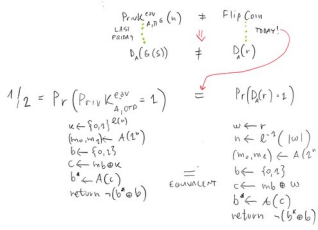 PrivK^{eav}_{A,Π_G}(n) ≠ FlipCoin
LAST FRIDAY
TODAY!
D_A(G(s)) ≠ D_A(r)
1/2 = Pr(PrivK^{eav}_{A,OTP} = 1) = Pr(D_A(r) = 1)
k ← {0,1}^{ℓ(n)}
(m₀, m₁) ← A(1ⁿ)
b ← {0,1}
c ← mb ⊕ k
b* ← A(c)
return ¬(b* ⊕ b)
=
EQUIVALENT
w ← r
n ← ℓ⁻¹(|w|)
(m₀, m₁) ← A(1ⁿ
b ← {0,1}
c ← mb ⊕ w
b* ← A(c)
return ¬(b* ⊕ b)